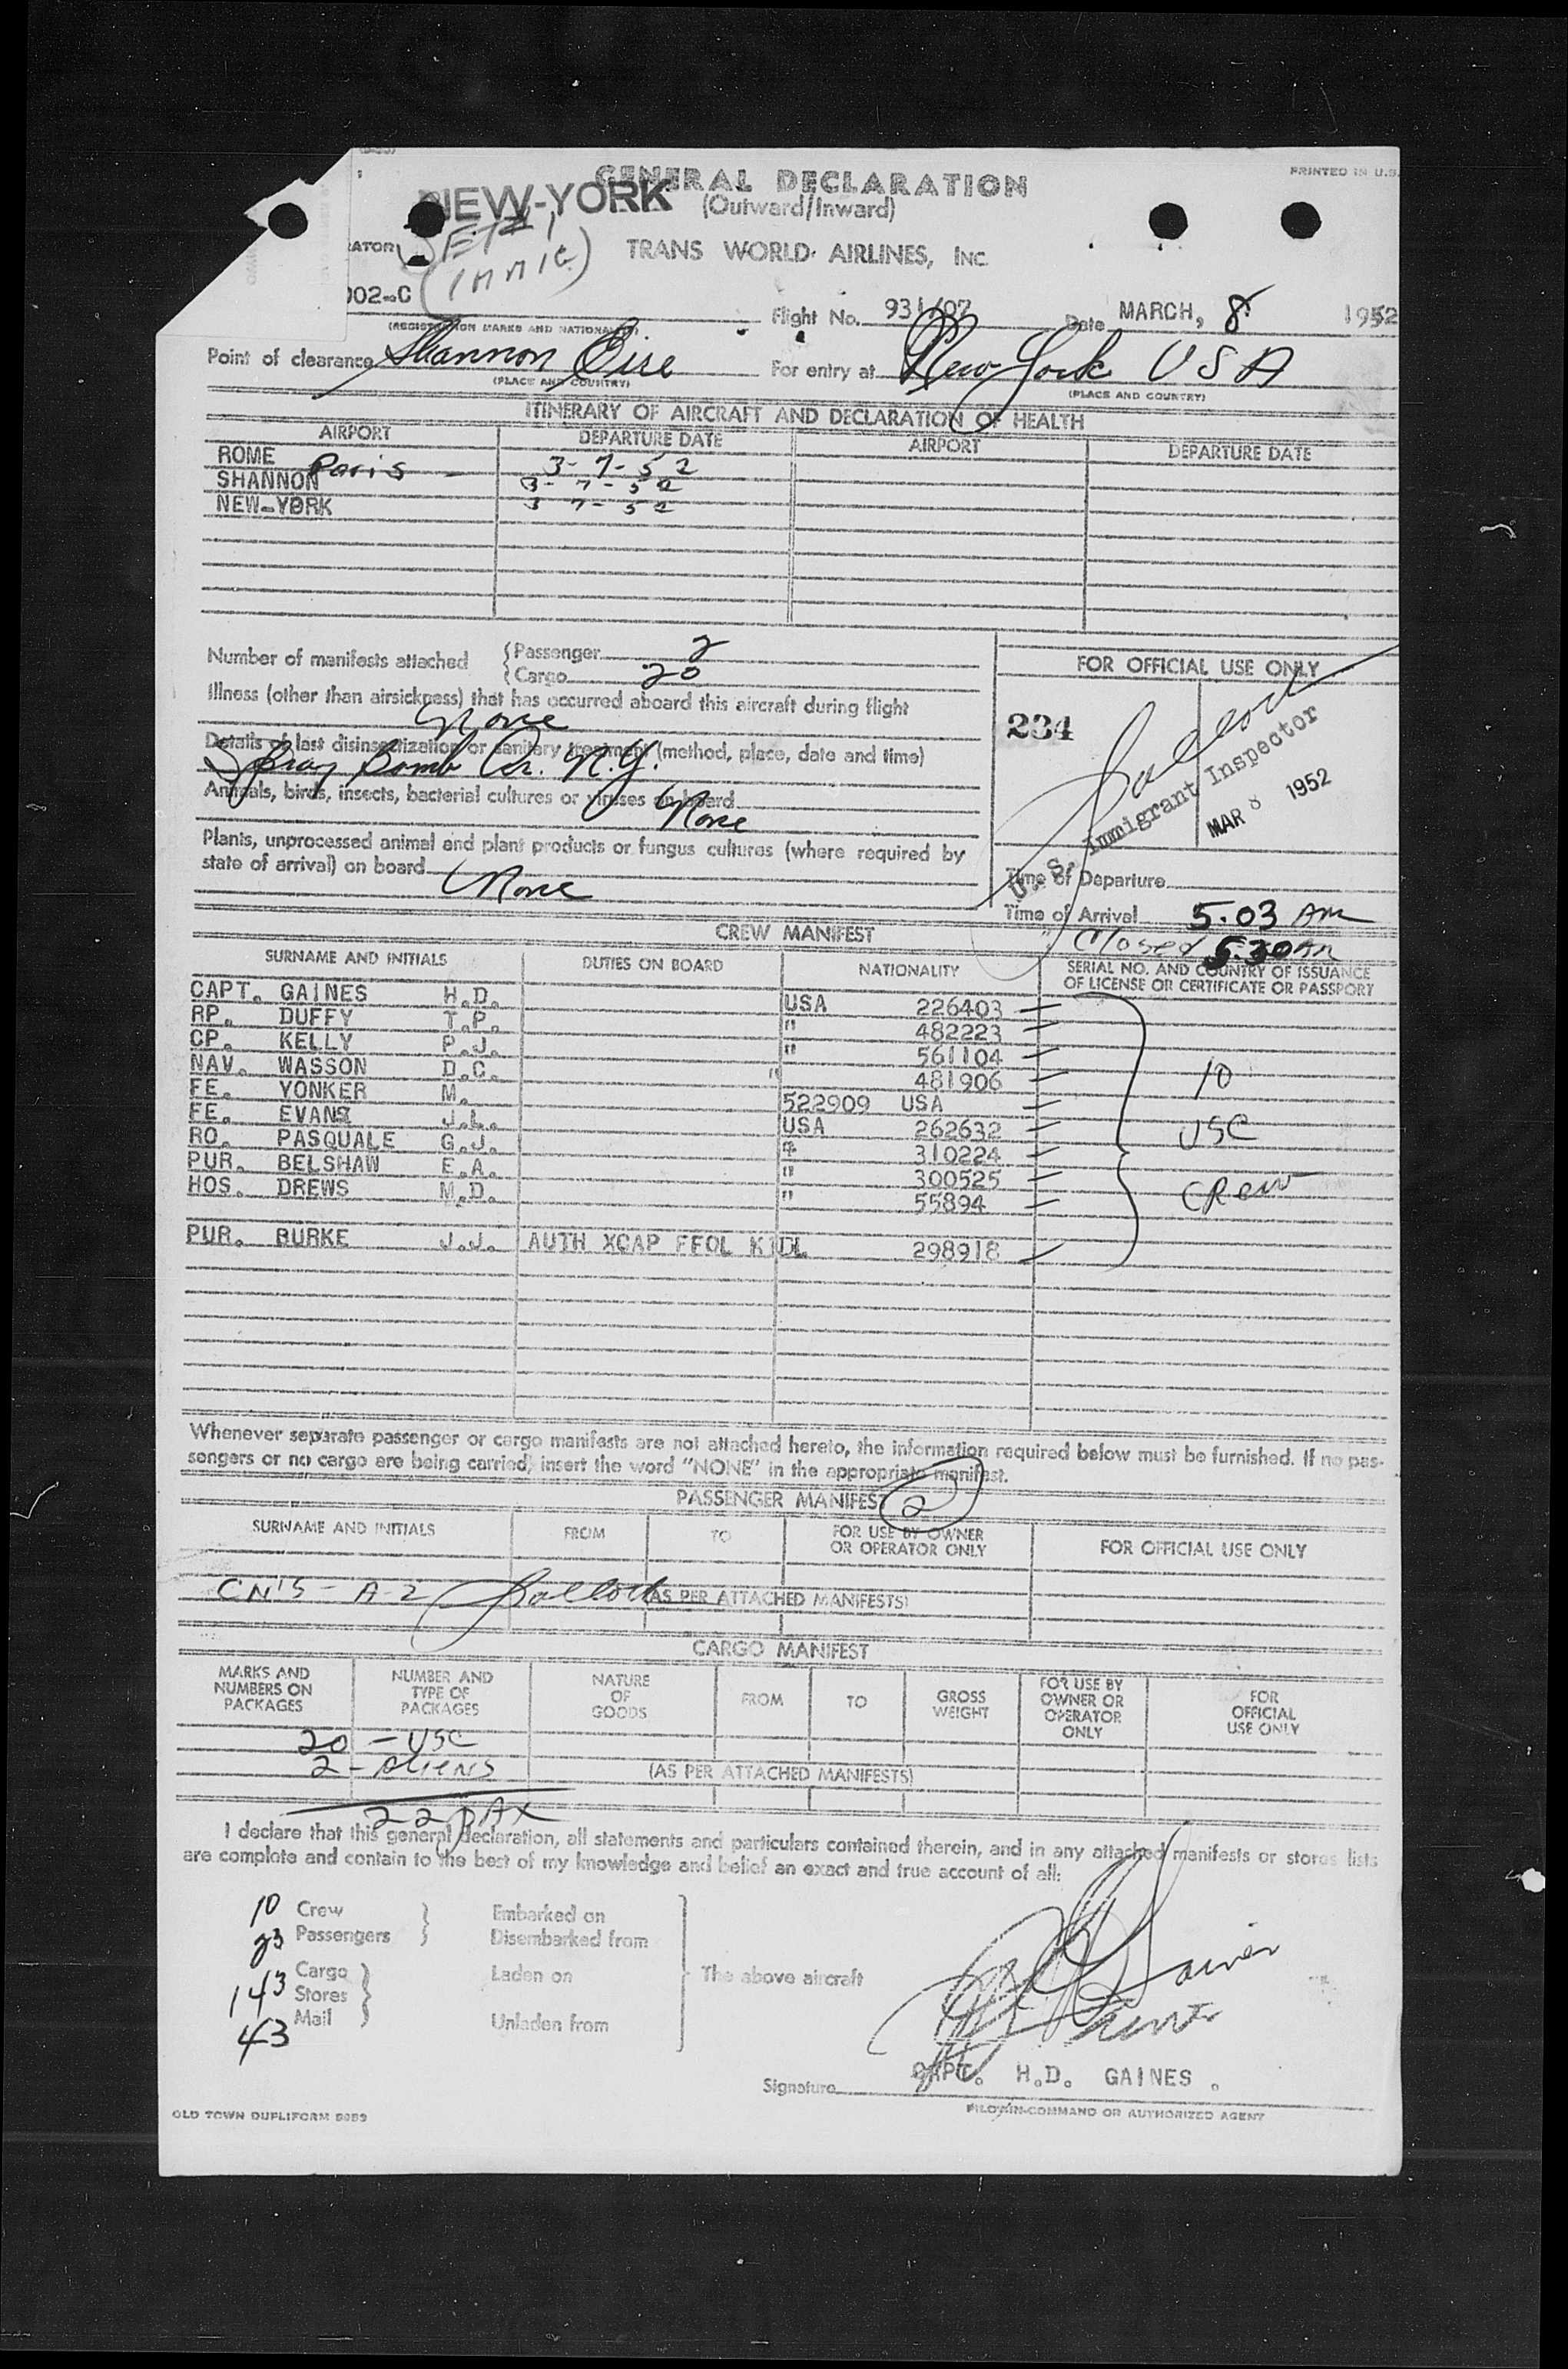 GENERAL DECLARATION
PRINTED IN U.S.
NEW-YORK
(Outward/Inward)
SET #1
(IMMIG)
TRANS WORLD AIRLINES, INC
Flight No. 931/07 Date MARCH, 8 1952
(REGISTRATION MARKS AND NATIONALITY)
Point of clearance Shannon Eire For entry at New York USA
(PLACE AND COUNTRY) (PLACE AND COUNTRY)
ITINERARY OF AIRCRAFT AND DECLARATION OF HEALTH
AIRPORT DEPARTURE DATE AIRPORT DEPARTURE DATE
ROME Paris 3-7-52
SHANNON 3-7-52
NEW-YORK 3 7-52
Number of manifests attached Passenger 2
Cargo 20
FOR OFFICIAL USE ONLY
Illness (other than airsickness) that has occurred aboard this aircraft during flight
None
234
Details of last disinsectization or sanitary treatment (method, place, date and time)
Spray Bomb Ar. N.Y.
Animals, birds, insects, bacterial cultures or viruses on board
None
U.S. Immigrant Inspector
MAR 8 1952
Plants, unprocessed animal and plant products or fungus cultures (where required by
state of arrival) on board None
Time of Departure
Time of Arrival 5.03 AM
" Closed 5.30 AM
CREW MANIFEST
SURNAME AND INITIALS DUTIES ON BOARD NATIONALITY SERIAL NO. AND COUNTRY OF ISSUANCE
OF LICENSE OR CERTIFICATE OR PASSPORT
CAPT. GAINES H.D. USA 226403
RP. DUFFY T.P. " 482223
CP. KELLY P.J. " 561104
NAV. WASSON D.C. " 481906
FE. YONKER M. 522909 USA
FE. EVANS J.L. USA 262632
RO. PASQUALE G.J. " 310224
PUR. BELSHAW E.A. " 300525
HOS. DREWS M.D. " 55894
10
USC
CREW
PUR. BURKE J.J. AUTH XCAP FFOL KIDL 298918
Whenever separate passenger or cargo manifests are not attached hereto, the information required below must be furnished. If no pas-
sengers or no cargo are being carried, insert the word "NONE" in the appropriate manifest.
PASSENGER MANIFEST 2
SURNAME AND INITIALS FROM TO FOR USE BY OWNER
OR OPERATOR ONLY FOR OFFICIAL USE ONLY
CN'S - A-2
(AS PER ATTACHED MANIFESTS)
CARGO MANIFEST
MARKS AND
NUMBERS ON
PACKAGES
NUMBER AND
TYPE OF
PACKAGES
NATURE
OF
GOODS
FROM
TO
GROSS
WEIGHT
FOR USE BY
OWNER OR
OPERATOR
ONLY
FOR
OFFICIAL
USE ONLY
20 - USC
2 - ALIENS
(AS PER ATTACHED MANIFESTS)
22 PAX
I declare that this general declaration, all statements and particulars contained therein, and in any attached manifests or stores lists
are complete and contain to the best of my knowledge and belief an exact and true account of all:
10 Crew Embarked on
23 Passengers Disembarked from
143 Cargo Laden on The above aircraft
Stores
43 Mail Unladen from
CAPT. H.D. GAINES .
Signature
PILOT-IN-COMMAND OR AUTHORIZED AGENT
OLD TOWN DUPLIFORM